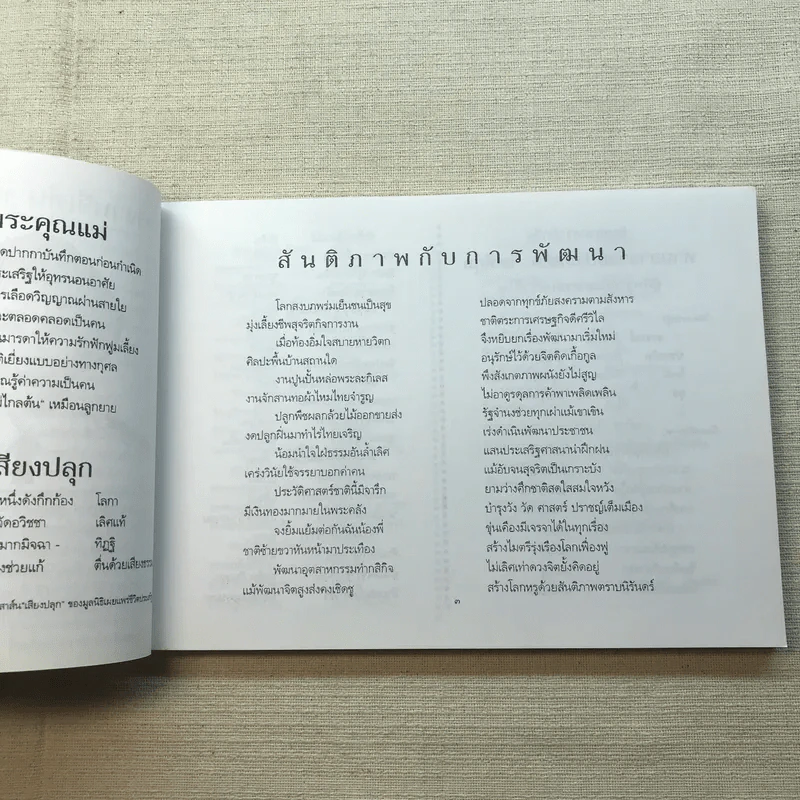 พระคุณแม่
ดปากกาบันทึกตอนก่อนกำเนิด
ระเสริฐให้อุทรนอนอาศัย
รเลือดวิญญาณผ่านสายใย
ะตลอดคลอดเป็นคน
มารดาให้ความรักฟักฟูมเลี้ยง
ติเยี่ยงแบบอย่างทางกุศล
ณรู้ค่าความเป็นคน
ม่ไกลต้น" เหมือนลูกยาย
เสียงปลุก
หนึ่งดังกึกก้อง โลกา
วัดอวิชชา เลิศแท้
มากมิจฉา - ทิฏฐิ
งช่วยแก้ ตื่นด้วยเสียงธรรม
สาส์น"เสียงปลุก" ของมูลนิธิเผยแพร่ชีวิตประเสริฐ
สันติภาพกับการพัฒนา
โลกสงบภพร่มเย็นชนเป็นสุข
มุ่งเลี้ยงชีพสุจริตกิจการงาน
เมื่อท้องอิ่มใจสบายหายวิตก
ศิลปะพื้นบ้านสถานใด
งานปูนปั้นหล่อพระละกิเลส
งานจักสานทอผ้าไหมไทยจำรูญ
ปลูกพืชผลกล้วยไม้ออกขายส่ง
งดปลูกฝิ่นมาทำไร่ไทยเจริญ
น้อมนำใจใฝ่ธรรมอันล้ำเลิศ
เคร่งวินัยใช้จรรยาบอกค่าคน
ประวัติศาสตร์ชาตินี้มีจารึก
มีเงินทองมากมายในพระคลัง
จงยิ้มแย้มต่อกันฉันน้องพี่
ชาติซ้ายขวาหันหน้ามาประเทือง
พัฒนาอุตสาหกรรมทำกสิกิจ
แม้พัฒนาจิตสูงส่งคงเชิดชู
ปลอดจากทุกข์ภัยสงครามตามสังหาร
ชาติตระการเศรษฐกิจดีศรีวิไล
จึงหยิบยกเรื่องพัฒนามาเริ่มใหม่
อนุรักษ์ไว้ด้วยจิตคิดเกื้อกูล
พึงสังเกตภาพผนังยังไม่สูญ
ไม่อาดูรดุลการค้าพาเพลิดเพลิน
รัฐจำนงช่วยทุกเผ่าแม้เขาเขิน
เร่งดำเนินพัฒนาประชาชน
แสนประเสริฐศาสนาน่าฝึกฝน
แม้อับจนสุจริตเป็นเกราะบัง
ยามว่างศึกชาติสดใสสมใจหวัง
บำรุงวัง วัด ศาสตร์ ปราชญ์เต็มเมือง
ขุ่นเคืองมีเจรจาได้ในทุกเรื่อง
สร้างไมตรีรุ่งเรืองโลกเฟื่องฟู
ไม่เลิศเท่าดวงจิตยั้งคิดอยู่
สร้างโลกหรูด้วยสันติภาพตราบนิรันดร์
๓